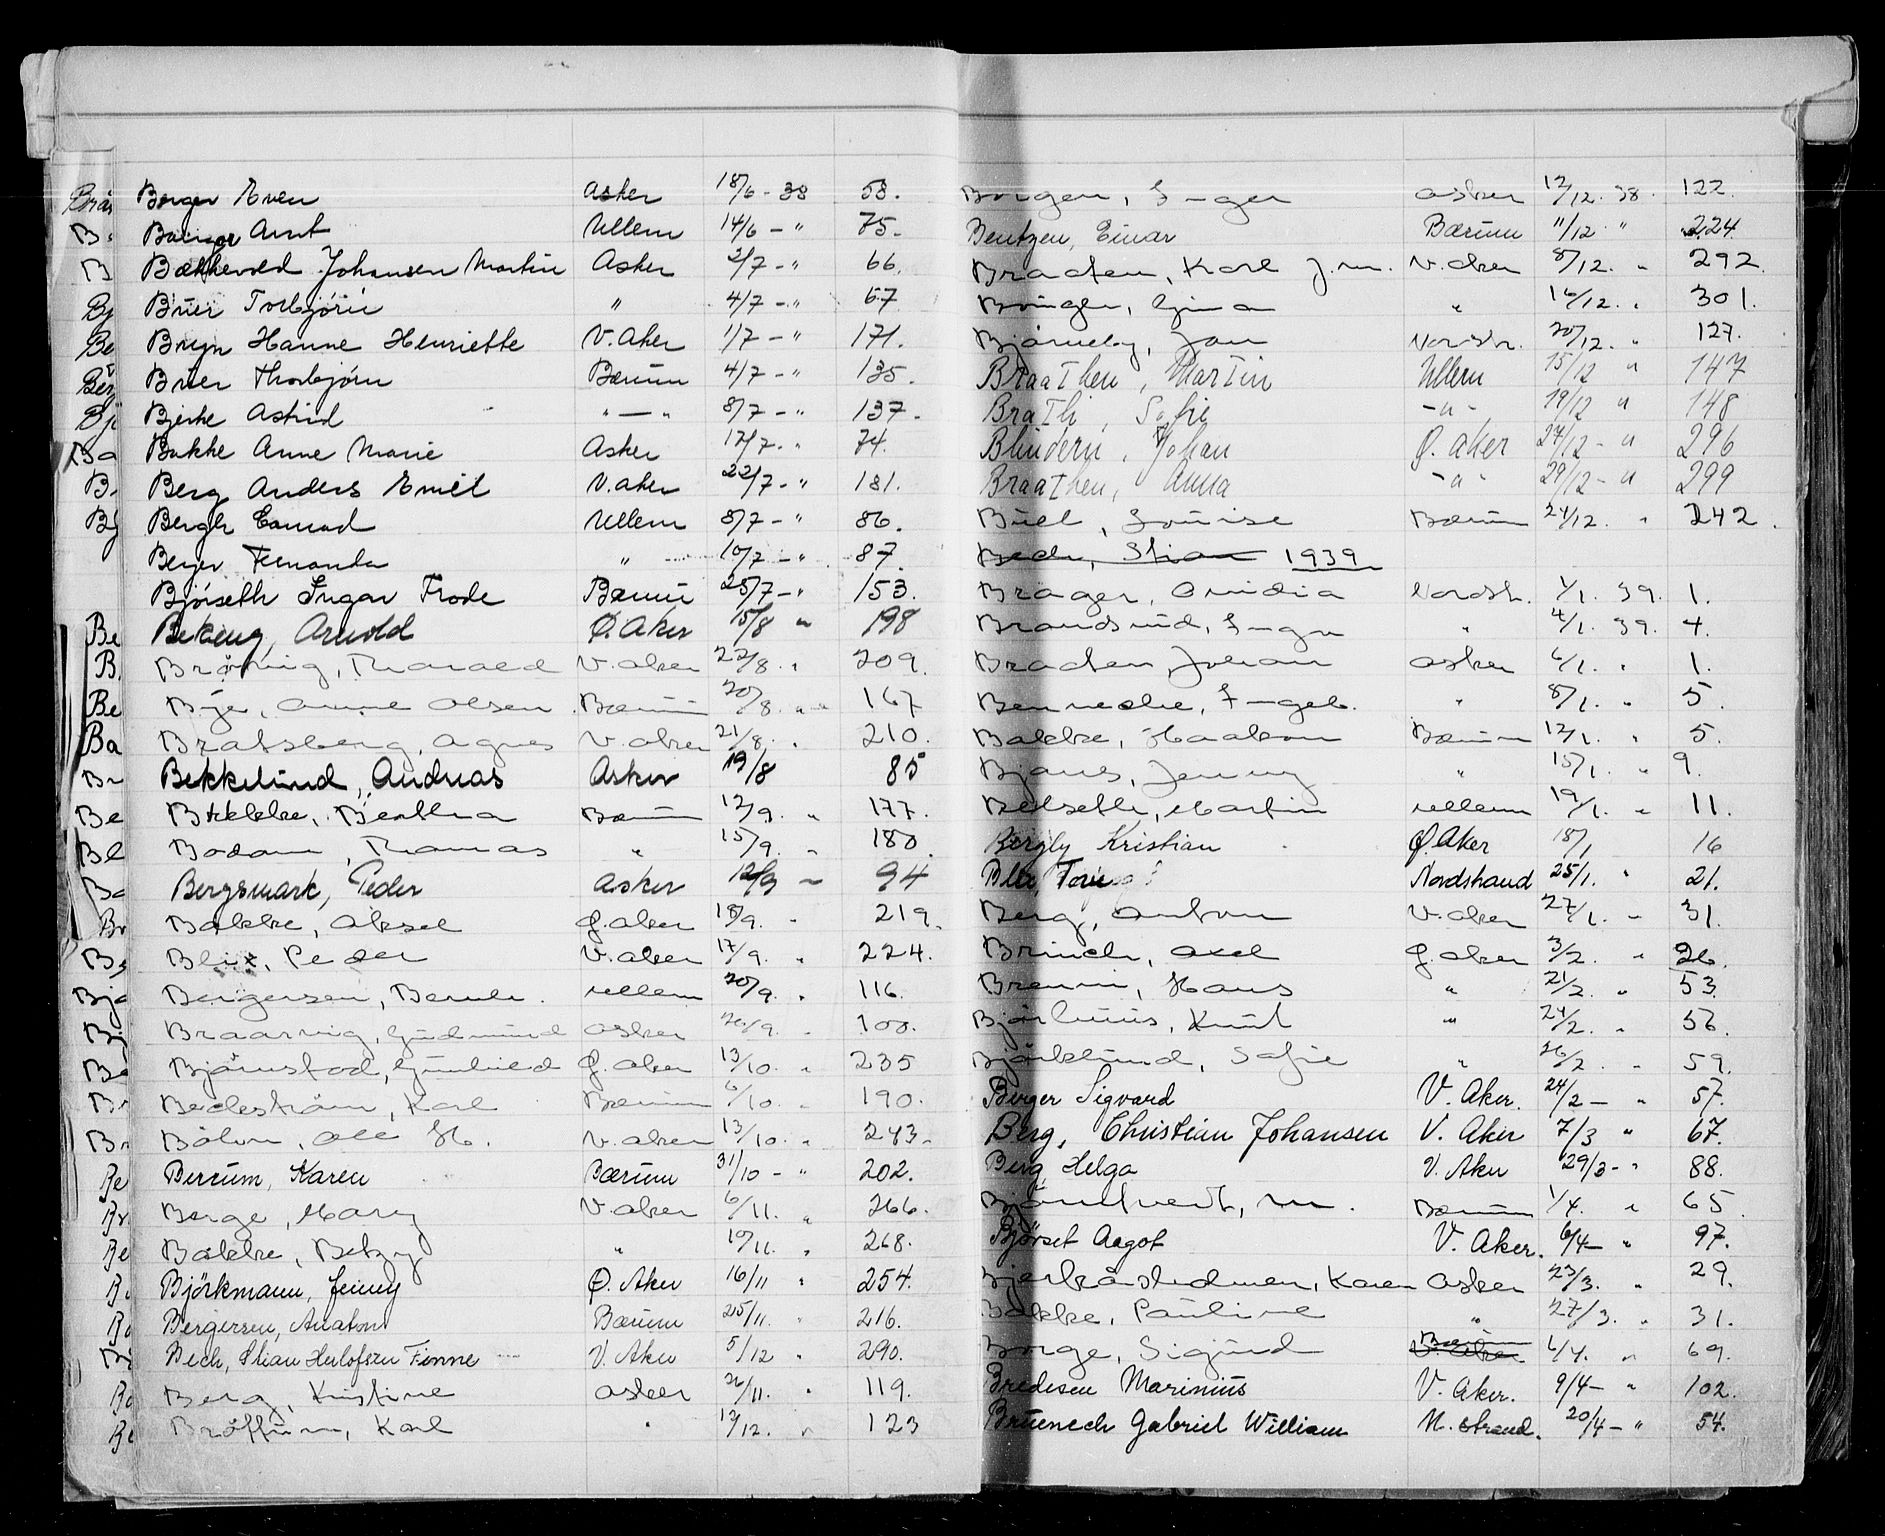 Berger Even Asker 18/6 - 38 58.
Arnt Ullern 14/6 - " 75.
Bækkevold Johansen Martin Asker 2/7 - " 66.
Bruer Torbjørn " 4/7 - " 67
Bryn Hanne Henriette V. Aker 1/7 - " 171.
Bruer Thorbjørn Bærum 4/7 - " 135.
Bjerke Astrid " — " 8/7 - " 137.
Bakke Anne Marie Asker 12/7 . " 74.
Berg Anders Emil V. aker 22/7 - " 181.
Bergh Conrad Ullern 8/7 - " 86.
Berger Fernanda " 10/7 - " 87.
Bjørseth Ingar Frode Bærum 28/7 - " 153.
Arnold Ø. Aker 15/8 " 198
Brøning, Harald V. aker 22/8 . " 209.
Bye, Anne Olsen Bærum 20/8 . " 167
Bratsberg, Agnes V. aker 21/8 . " 210.
Bekkelund, Andreas Asker 19/8 85
Bekkke, Berthea Bærum 12/9 . " 177.
Bodom, Thomas " 15/9 . " 180.
Bergsmark, Peder Asker 12/9 " 94
Bakke, Aksel Ø. aker 18/9 . " 219.
Blix, Peder V. aker 17/9 . " 224.
Bergersen, Bernh. Ullern 20/9 . " 116.
Braarvig, Gudmund Asker 26/9 . " 100.
Bjørnstad, Gunhild Ø. aker 13/10 . " 235
Beckström, Karl Bærum 6/10 . " 190.
Böhn, Ole H. V. aker 13/10 . " 243.
Berrum, Karen Bærum 31/10 - " 202.
Berge, Mary V. aker 6/11 . " 266.
Bakke, Betzy " 10/11 . " 268.
Björkmann, Jenny Ø. Aker 16/11 " 254.
Bergersen, Anaton Bærum 25/11 . " 216.
Bech, Stian Herlofsen Finne V. Aker 5/12 " 290.
Berg, Kristine Asker 26/11 . " 119.
Brøttum, Karl " 12/12 . " 123
Borgen, Inger Asker 12/12 . 38. 122.
Bentzen, Einar Bærum 11/12 " 224.
Braaten, Karl J.M. V. aker 8/12 . " 292.
Bringen, Gina " 16/12 . " 301.
Bjørneby, Jon Nordstr. 20/12 . " 127.
Braathen, Martin Ullern 15/12 " 147
Bråthi, Sofie - " - 19/12 " 148
Blindern, Johan Ø. aker 27/12 - " 296
Braathen, Anna - " - 29/12 - " 299
Buel, Louise Bærum 24/12 . " 242.
Bech, Stian 1939
Brager, Nordstr. 1/1 . 39. 1.
Brandsrud, Inga " 4/1 . 39. 4.
Braaten, Johan Asker 6/1 . " 1.
Bennecke, Ingeb. " 8/1 . " 5.
Bakke, Haakon Bærum 12/1 . " 5.
Bjans, Jenny " 15/1 . " 9.
Betseth, Martin Ullern 19/1 . " 11.
Bergly Kristian Ø. Aker 18/1 16
Nordstrand 25/1 . " 21.
Berg, Anton V. aker 27/1 . " 31.
Brinch, Axel Ø. aker 3/2 . " 26.
Breuni, Hans " 21/2 . " 53.
Bjørhuus, Knut " 24/2 . " 56.
Björklund, Sofie " 26/2 . " 59.
Berger Sigvard V. Aker. 24/2 — " 57.
Berg, Christian Johansen V. Aker 7/3 " 67.
Berg Helga V. Aker 29/3 - " 88.
Bjørntvedt, M. Bærum 1/4 . " 65.
Bjørset Aagot V. Aker. 6/4 — " 97.
Bjerkåsholmen, Karen Asker 23/3 . " 29.
Bakke, Pauline " 27/3 . " 31.
Borge, Sigurd Bærum 6/4 . " 69.
Bredesen Marinius V. Aker. 9/4 — " 102.
Bruenech Gabriel William N. Strand. 20/4 — " 54.